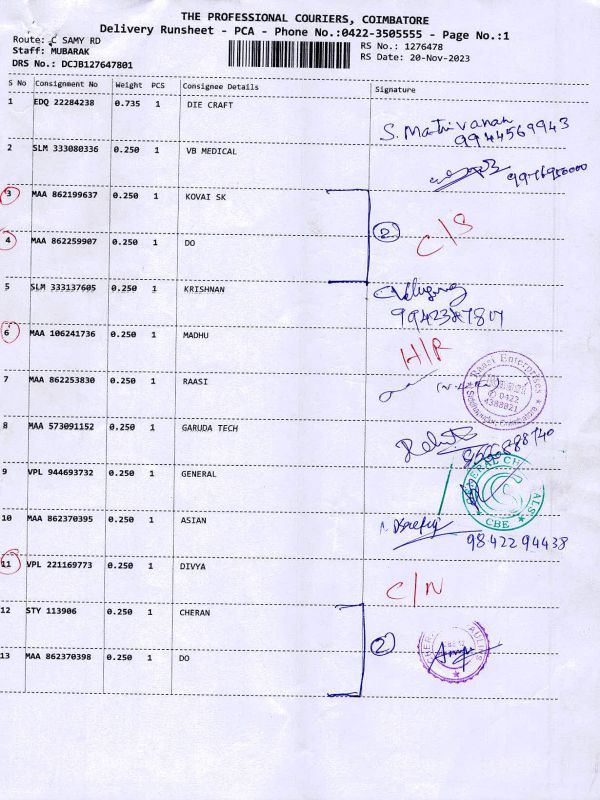 THE PROFESSIONAL COURIERS, COIMBATORE
Delivery Runsheet - PCA - Phone No.:0422-3505555 - Page No.:1
Route: C SAMY RD
Staff: MUBARAK
DRS No.: DCJB127647801
RS No.: 1276478
RS Date: 20-Nov-2023
S No Consignment No Weight PCS Consignee Details Signature
1 EDQ 22284238 0.735 1 DIE CRAFT
S. Mathivanan
9944569943
2 SLM 333080336 0.250 1 VB MEDICAL
3 MAA 862199637 0.250 1 KOVAI SK
2 C/S
4 MAA 862259907 0.250 1 DO
5 SLM 333137605 0.250 1 KRISHNAN
6 MAA 106241736 0.250 1 MADHU
H/R
7 MAA 862253830 0.250 1 RAASI
Raasi Enterprises
0422
4388821
8 MAA 573091152 0.250 1 GARUDA TECH
9 VPL 944693732 0.250 1 GENERAL
CBE
10 MAA 862370395 0.250 1 ASIAN
9842294438
11 VPL 221169773 0.250 1 DIVYA
C/N
12 STY 113906 0.250 1 CHERAN
2
13 MAA 862370398 0.250 1 DO